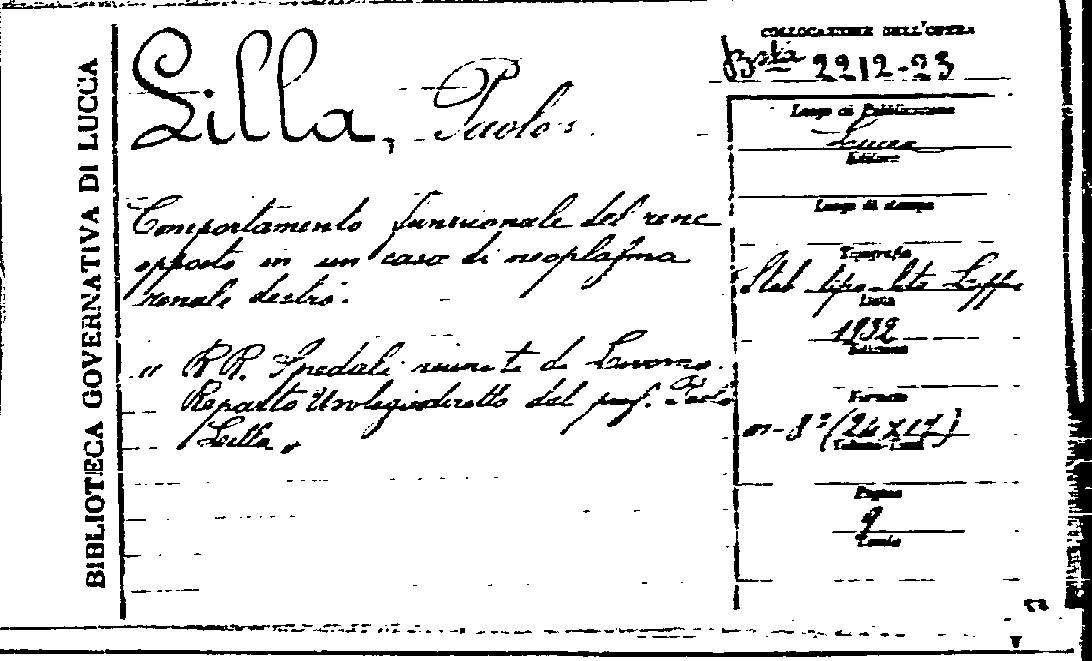 BIBLIOTECA GOVERNATIVA DI LUCCA
Lilla, Paolo
Comportamento funzionale del rene
opposto in un caso di neoplasma
renale destro.
" RR. Spedali riuniti di Livorno.
Reparto Urologico diretto dal prof. Paolo
Lilla "
COLLOCAZIONE DELL'OPERA
Bsta 2212-23
Luogo di Pubblicazione
Lucca
Editore
Luogo di stampa
Tipografia
Stab tipo-lito
Data
1932
Edizione
Formato
in-8° (24x17)
Pagine
9